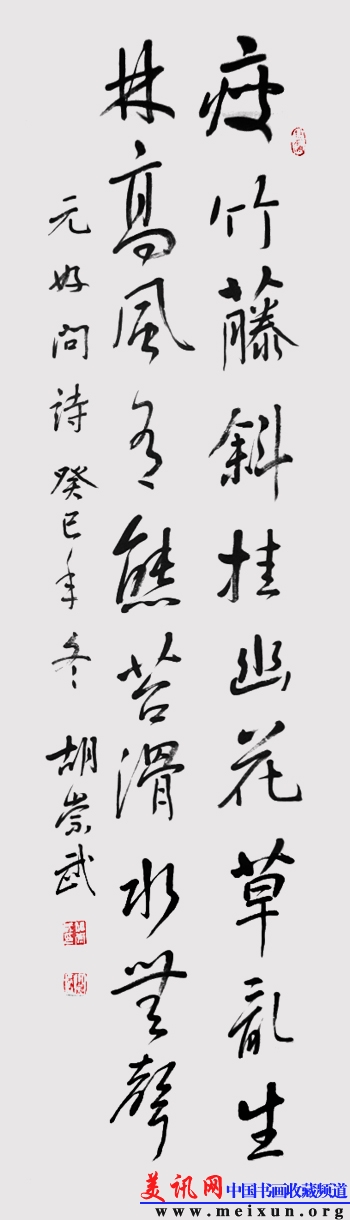 瘦竹藤斜挂幽花草亂生
林高風有態苔滑水無聲
元好问詩癸巳年冬胡崇武
美讯网中国书画收藏频道
www.meixun.org